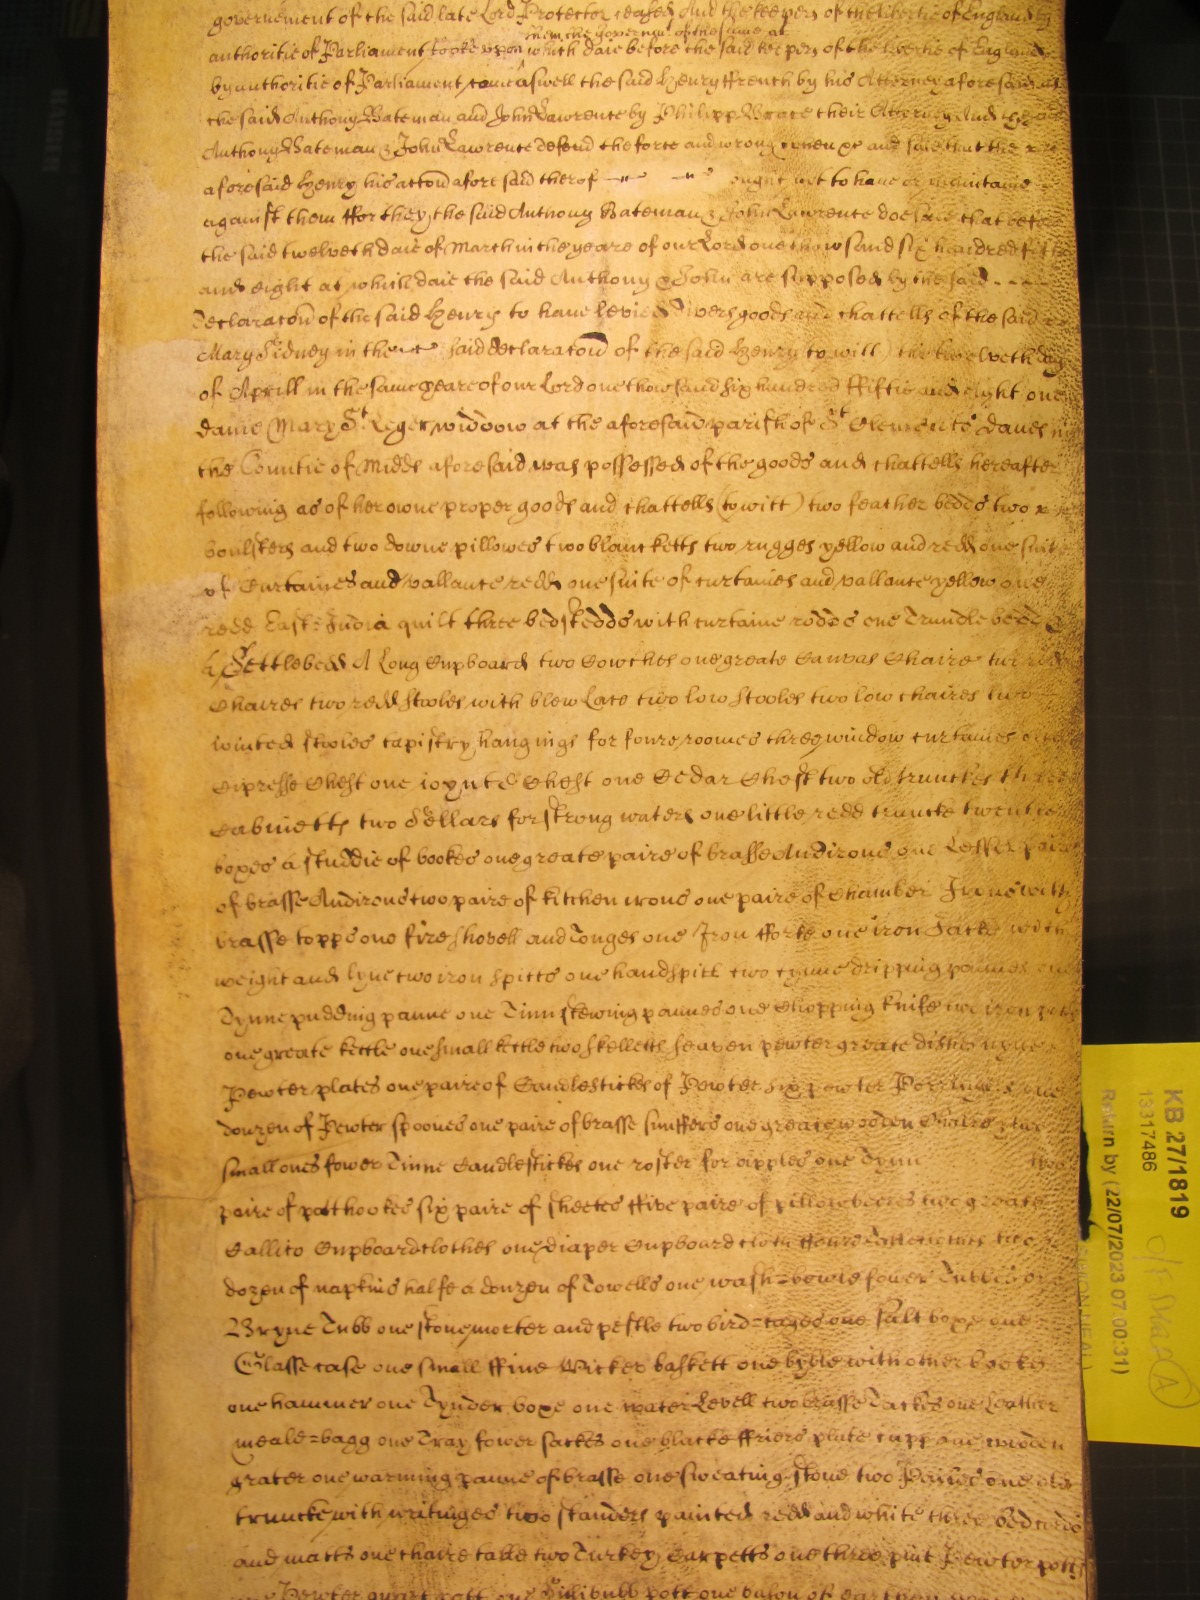 governement of the said late Lord Protector ceased And the keepers of the libertie of England by
them the governmt of the same at
authoritie of Parliament tooke upon which daie before the said keepers of the libertie of England
by authoritie of Parliament, come aswell the said Henry ffrench by his Attorney aforesaid as
the said Anthony Bateman and John Lawrence by Philipp Brace their Attorney And the said
Anthony Bateman & John Lawrence defend the force and wrong when &c and saie that the
aforesaid Henry his accon afore said therof ought not to have or maintaine
against them ffor they the said Anthony Bateman & John Lawrence doe saie that before
the said twelveth daie of March in the yeare of our Lord one thowsand six hundred fiftie
and eight at which daie the said Anthony & John are supposed by the said
declaracon of the said Henry to have levied divers goods and chattells of the said
Mary Sidney in the said declaracon of the said Henry (to witt) the twelveth day
of Aprill in the same yeare of our Lord one thowsand six hundred ffiftie and eight one
dame Mary St Leger widdow at the aforesaid parish of St Clements Danes in
the Countie of Midds aforesaid was possessed of the goods and chattells hereafter
following as of her owne proper goods and chattells (to witt) two feather bedds two
boulsters and two downe pillowes two blancketts two rugges yellow and redd one suit
of Curtaines and vallance redd one suite of curtaines and vallance yellow one
redd East: India quilt three bedstedds with curtaine rodds one Trundle bedd
a Settlebedd A Long Cupboard two Cowches one greate Canvas Chaire two redd
Chaires two redd stooles with blew Lace two low stooles two low chaires two
ioined stooles tapistry hangings for foure roomes three window curtaines one
Cipresse Chest one ioynted Chest one Cedar Chest two old trunckes three
Cabinetts two Sellars for strong waters one little redd truncke twentie
boxes a studdie of bookes one greate paire of brasse Andirons one Lesser paire
of brasse Andirons two paire of kitchen irons one paire of Chamber Irons with
brasse topps one fire shovell and Tonges one Iron fforke one iron Jacke with
weight and lyne two iron spitts one handspitt two tynne dripping pannes one
Tynne pudding panne one Tinn stewing pannes one Chopping knife two iron
one greate kettle one small kettle two skelletts seaven pewter greate dishes
Pewter plates one paire of Candlestickes of Pewter six pewter Porringers one
douzen of Pewter spoones one paire of brasse snuffers one greate wooden
small ones fower Tinne Candlestickes one roster for apples one Tynn two
paire of potthookes six paire of sheetes ffive paire of pillowbeeres two greate
Callico Cupboardclothes one diaper Cupboard cloth
dozen of napkins halfe a douzen of Towells one wash=bowle fower Tubbs one
Bryne Tubb one stone morter and pestle two bird=cages one salt boxe one
Glasse case one small ffine Wicker baskett one byble with other bookes
one hammer one Tynder boxe one water Levell two brasse Jackes one Leather
meale=bagg one Tray fower sackes one blacke ffriers plate cupp one wooden
grater one warming panne of brasse one sweating stone two one old
truncke with writinges two standers painted redd and white three bedcords
and matts one chaire table two Turkey Carpetts one three pint Pewter pott
one Pewter quart pott one Sillibubb pott one bason of earthen
KB 27/1819
13317486
Return by (22/07/2023 07:00:31)
SIMON NEAL
A